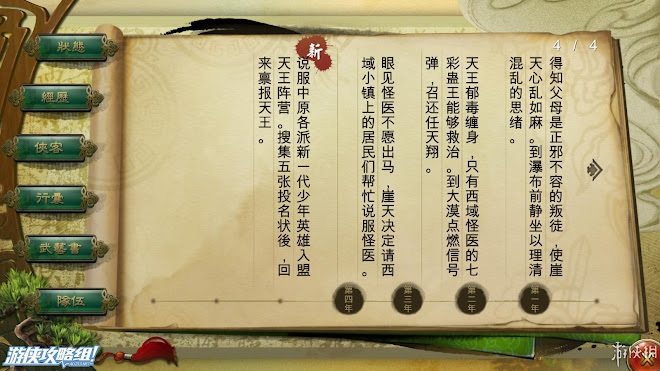 狀態
經歷
俠客
行囊
武藝書
隊伍
4 / 4
得知父母是正邪不容的叛徒，使崖
天心乱如麻。到瀑布前静坐以理清
混乱的思绪。
天王郁毒缠身，只有西域怪医的七
彩蛊王能够救治。到大漠点燃信号
弹，召还任天翔。
眼见怪医不愿出马，崖天决定请西
域小镇上的居民们帮忙说服怪医。
新
说服中原各派新一代少年英雄入盟
天王阵营。搜集五张投名状後，回
来禀报天王。
第一年
第二年
第三年
第四年
游侠攻略组!
游侠网